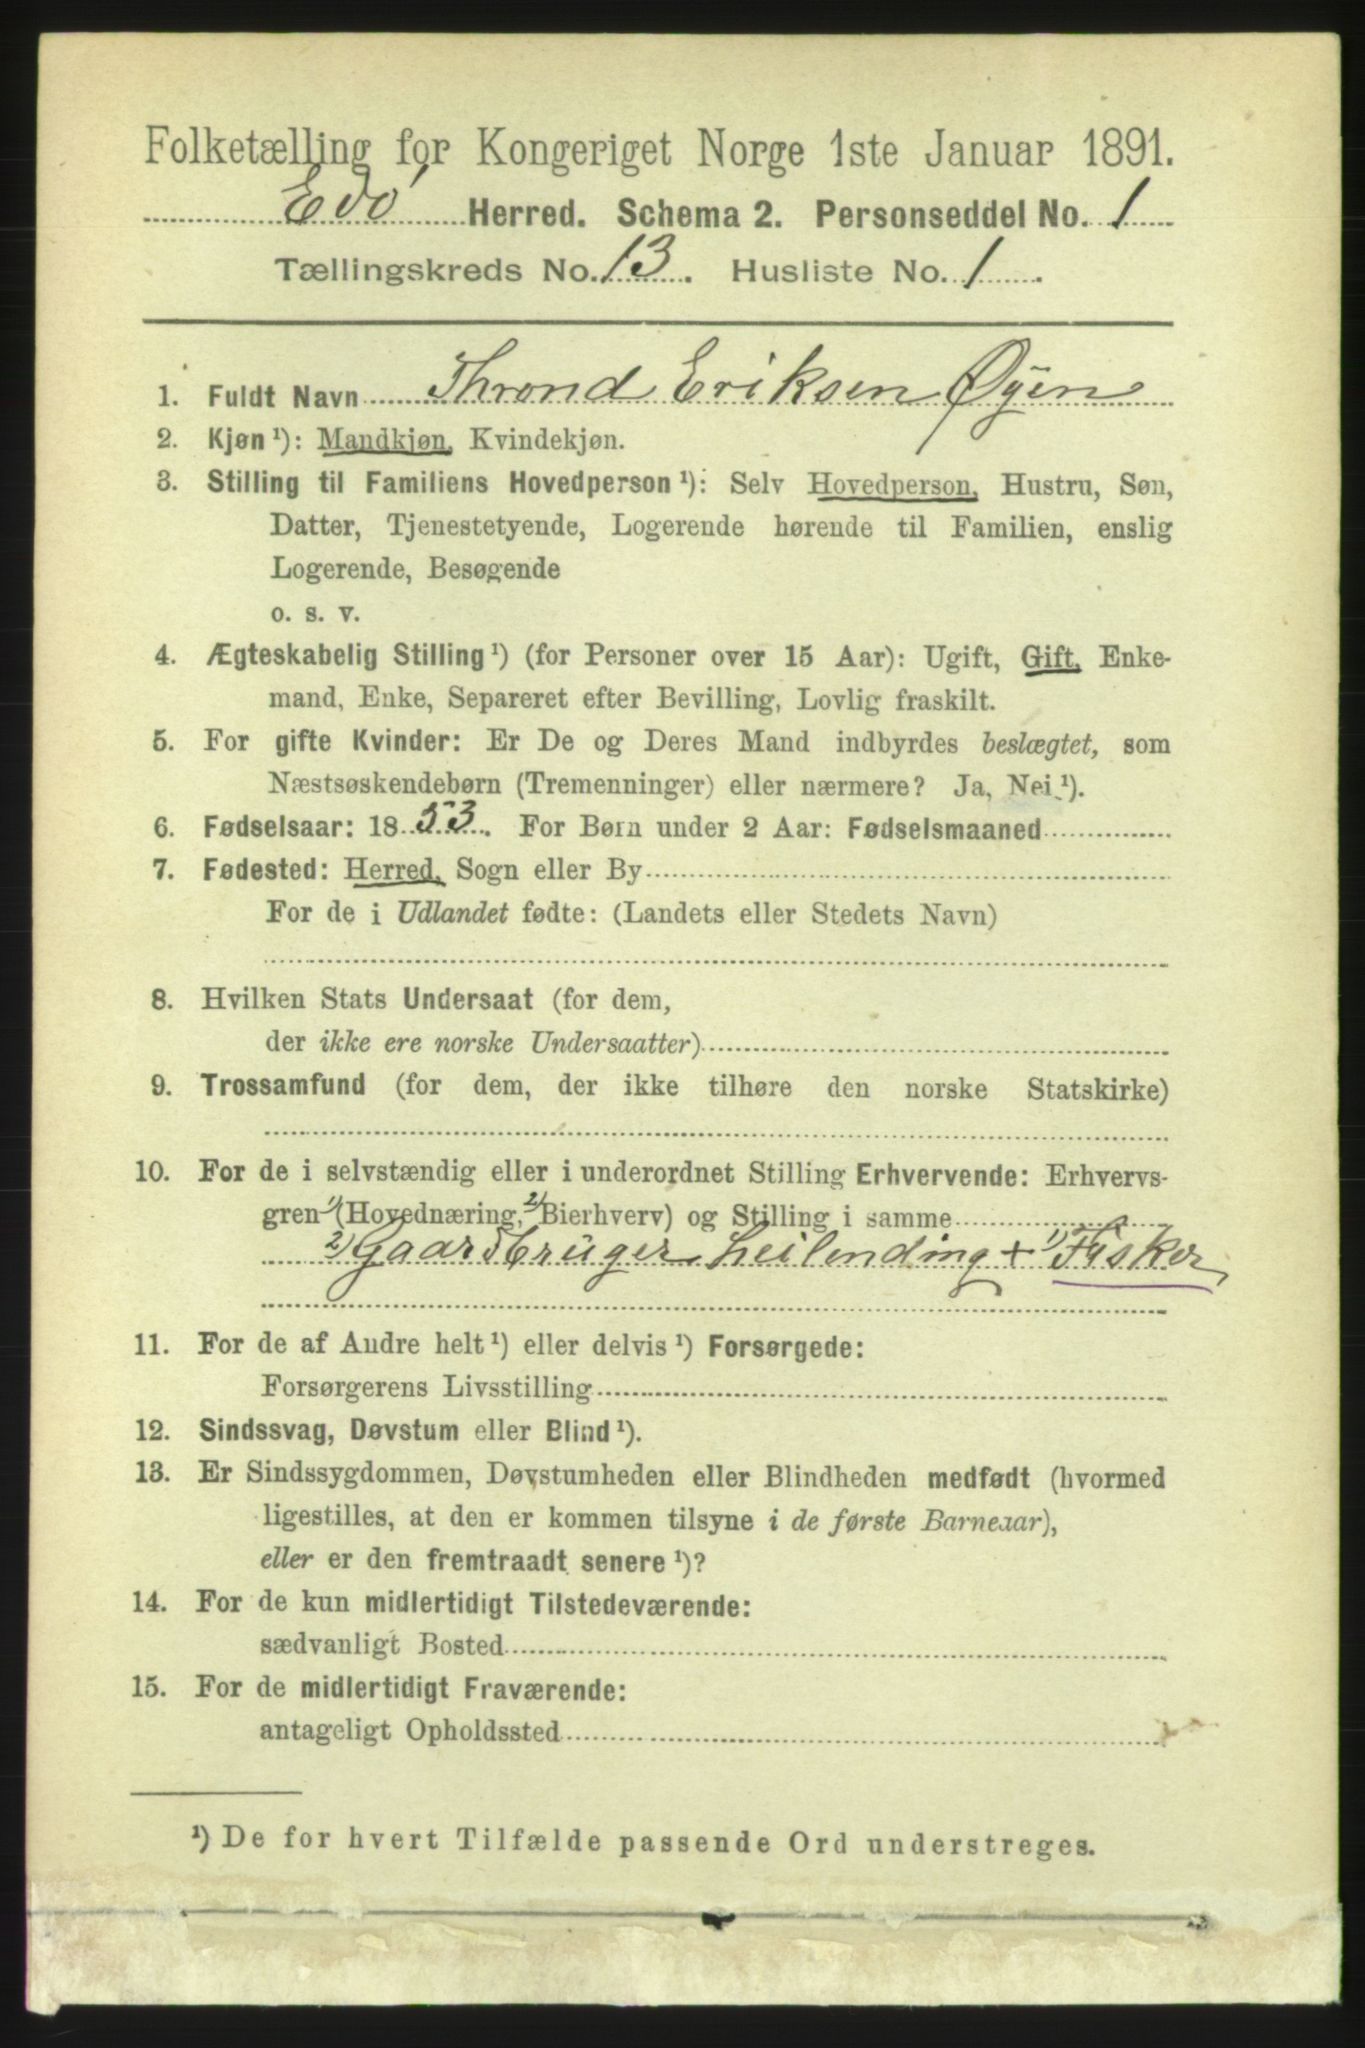 Folketælling for Kongeriget Norge 1ste Januar 1891.
Edö Herred. Schema 2. Personseddel No. 1
Tællingskreds No. 13. Husliste No. 1.
1. Fuldt Navn Thrond Eriksen Øyen
2. Kjøn ¹): Mandkjøn, Kvindekjøn.
3. Stilling til Familiens Hovedperson ¹): Selv Hovedperson, Hustru, Søn,
Datter, Tjenestetyende, Logerende hørende til Familien, enslig
Logerende, Besøgende
o. s. v.
4. Ægteskabelig Stilling ¹) (for Personer over 15 Aar): Ugift, Gift, Enke-
mand, Enke, Separeret efter Bevilling, Lovlig fraskilt.
5. For gifte Kvinder: Er De og Deres Mand indbyrdes beslægtet, som
Næstsøskendebørn (Tremenninger) eller nærmere? Ja, Nei ¹).
6. Fødselsaar: 1853. For Børn under 2 Aar: Fødselsmaaned
7. Fødested: Herred, Sogn eller By
For de i Udlandet fødte: (Landets eller Stedets Navn)
8. Hvilken Stats Undersaat (for dem,
der ikke ere norske Undersaatter)
9. Trossamfund (for dem, der ikke tilhøre den norske Statskirke)
10. For de i selvstændig eller i underordnet Stilling Erhvervende: Erhvervs-
gren 1) (Hovednæring, 2) Bierhverv) og Stilling i samme
2) Gaardbruger Leilending + 1) Fisker
11. For de af Andre helt ¹) eller delvis ¹) Forsørgede:
Forsørgerens Livsstilling
12. Sindssvag, Døvstum eller Blind ¹).
13. Er Sindssygdommen, Døvstumheden eller Blindheden medfødt (hvormed
ligestilles, at den er kommen tilsyne i de første Barneaar),
eller er den fremtraadt senere ¹)?
14. For de kun midlertidigt Tilstedeværende:
sædvanligt Bosted
15. For de midlertidigt Fraværende:
antageligt Opholdssted
¹) De for hvert Tilfælde passende Ord understreges.